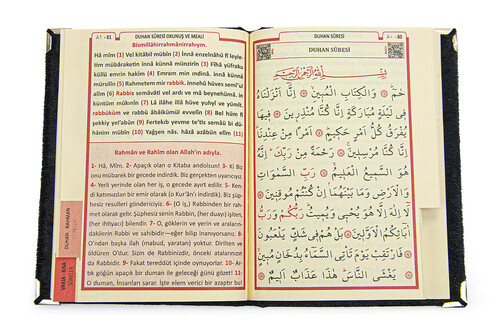 ٨١ - 81
DUHAN SÛRESİ OKUNUŞ VE MEALİ
Bismillâhirrahmânirrahîym.
Hâ mîm (1) Vel kitâbil mübîn (2) İnnâ enzelnâhü fî leyle-
tim mübâraketin innâ künnâ münzirîn (3) Fîhâ yüfraku
küllü emrin hakîm (4) Emram min ındinâ. innâ künnâ
mürsilîn (5) Rahmetem mir rabbik. innehû hüves semî'ul
alîm (6) Rabbis semâvâti vel ardı ve mâ beynehümâ. in
küntüm mûkınîn (7) Lâ ilâhe illâ hüve yuhyî ve yümît.
rabbüküm ve rabbü âbâikümül evvelîn (8) Bel hüm fî
şekkiy yel'abûn (9) Fertekıb yevme te'tis semâü bi dü-
hânim mübîn (10) Yağşen nâs. hâzâ azâbün elîm (11)
Rahmân ve Rahîm olan Allah'ın adıyla.
1- Hâ, Mîm. 2- Apaçık olan o Kitaba andolsun! 3- Ki Biz
onu mübarek bir gecede indirdik. Biz gerçekten uyarıcıyız.
4- Yerli yerinde olan her iş, o gecede ayırt edilir. 5- Ken-
di katımızdan bir emir olarak (o Kur'ân'ı indirdik). Biz, şüp-
hesiz resulleri göndericiyiz. 6- (O iş,) Rabbinden bir rah-
met olarak gelir. Şüphesiz senin Rabbin, (her duayı) işiten,
(her ihtiyacı) bilendir. 7- O, göklerin, yerin ve araların-
dakilerin Rabbi ve sahibidir—eğer bilip inanıyorsanız. 8-
O'ndan başka ilah (mabud, yaratan) yoktur. Dirilten ve
öldüren O'dur. Sizin de Rabbinizdir, önceki atalarınızın
da Rabbidir. 9- Fakat tereddüt içinde oynuyorlar. 10- Ar-
tık göğün apaçık bir duman ile geleceği günü gözet! 11-
O duman, İnsanları sarar. İşte elem verici bir azaptır bu!
DUHAN - RAHMAN
VAKIA - KISA
SÛRELER
DUHAN SÛRESİ
٨٠ - 80
DUHAN SÛRESİ
بِسْمِ اللّٰهِ الرَّحْمٰنِ الرَّحِيمِ
حٰمٓ ۝ وَالْكِتَابِ الْمُبِينِ ۝ اِنَّٓا اَنْزَلْنَاهُ
فِى لَيْلَةٍ مُبَارَكَةٍ اِنَّا كُنَّا مُنْذِرِينَ ۝ فِيهَا
يُفْرَقُ كُلُّ اَمْرٍ حَكِيمٍ ۝ اَمْرًا مِنْ عِنْدِنَا
اِنَّا كُنَّا مُرْسِلِينَ ۝ رَحْمَةً مِنْ رَبِّكَ اِنَّهُ
هُوَ السَّمِيعُ الْعَلِيمُ ۝ رَبِّ السَّمٰوَاتِ
وَالْاَرْضِ وَمَا بَيْنَهُمَا اِنْ كُنْتُمْ مُوقِنِينَ ۝
لَٓا اِلٰهَ اِلَّا هُوَ يُحْيِى وَيُمِيتُ رَبُّكُمْ وَرَبُّ
اٰبَٓائِكُمُ الْاَوَّلِينَ ۝ بَلْ هُمْ فِى شَكٍّ يَلْعَبُونَ
۝ فَارْتَقِبْ يَوْمَ تَأْتِى السَّمَٓاءُ بِدُخَانٍ مُبِينٍ
۝ يَغْشَى النَّاسَ هٰذَا عَذَابٌ اَلِيمٌ ۝